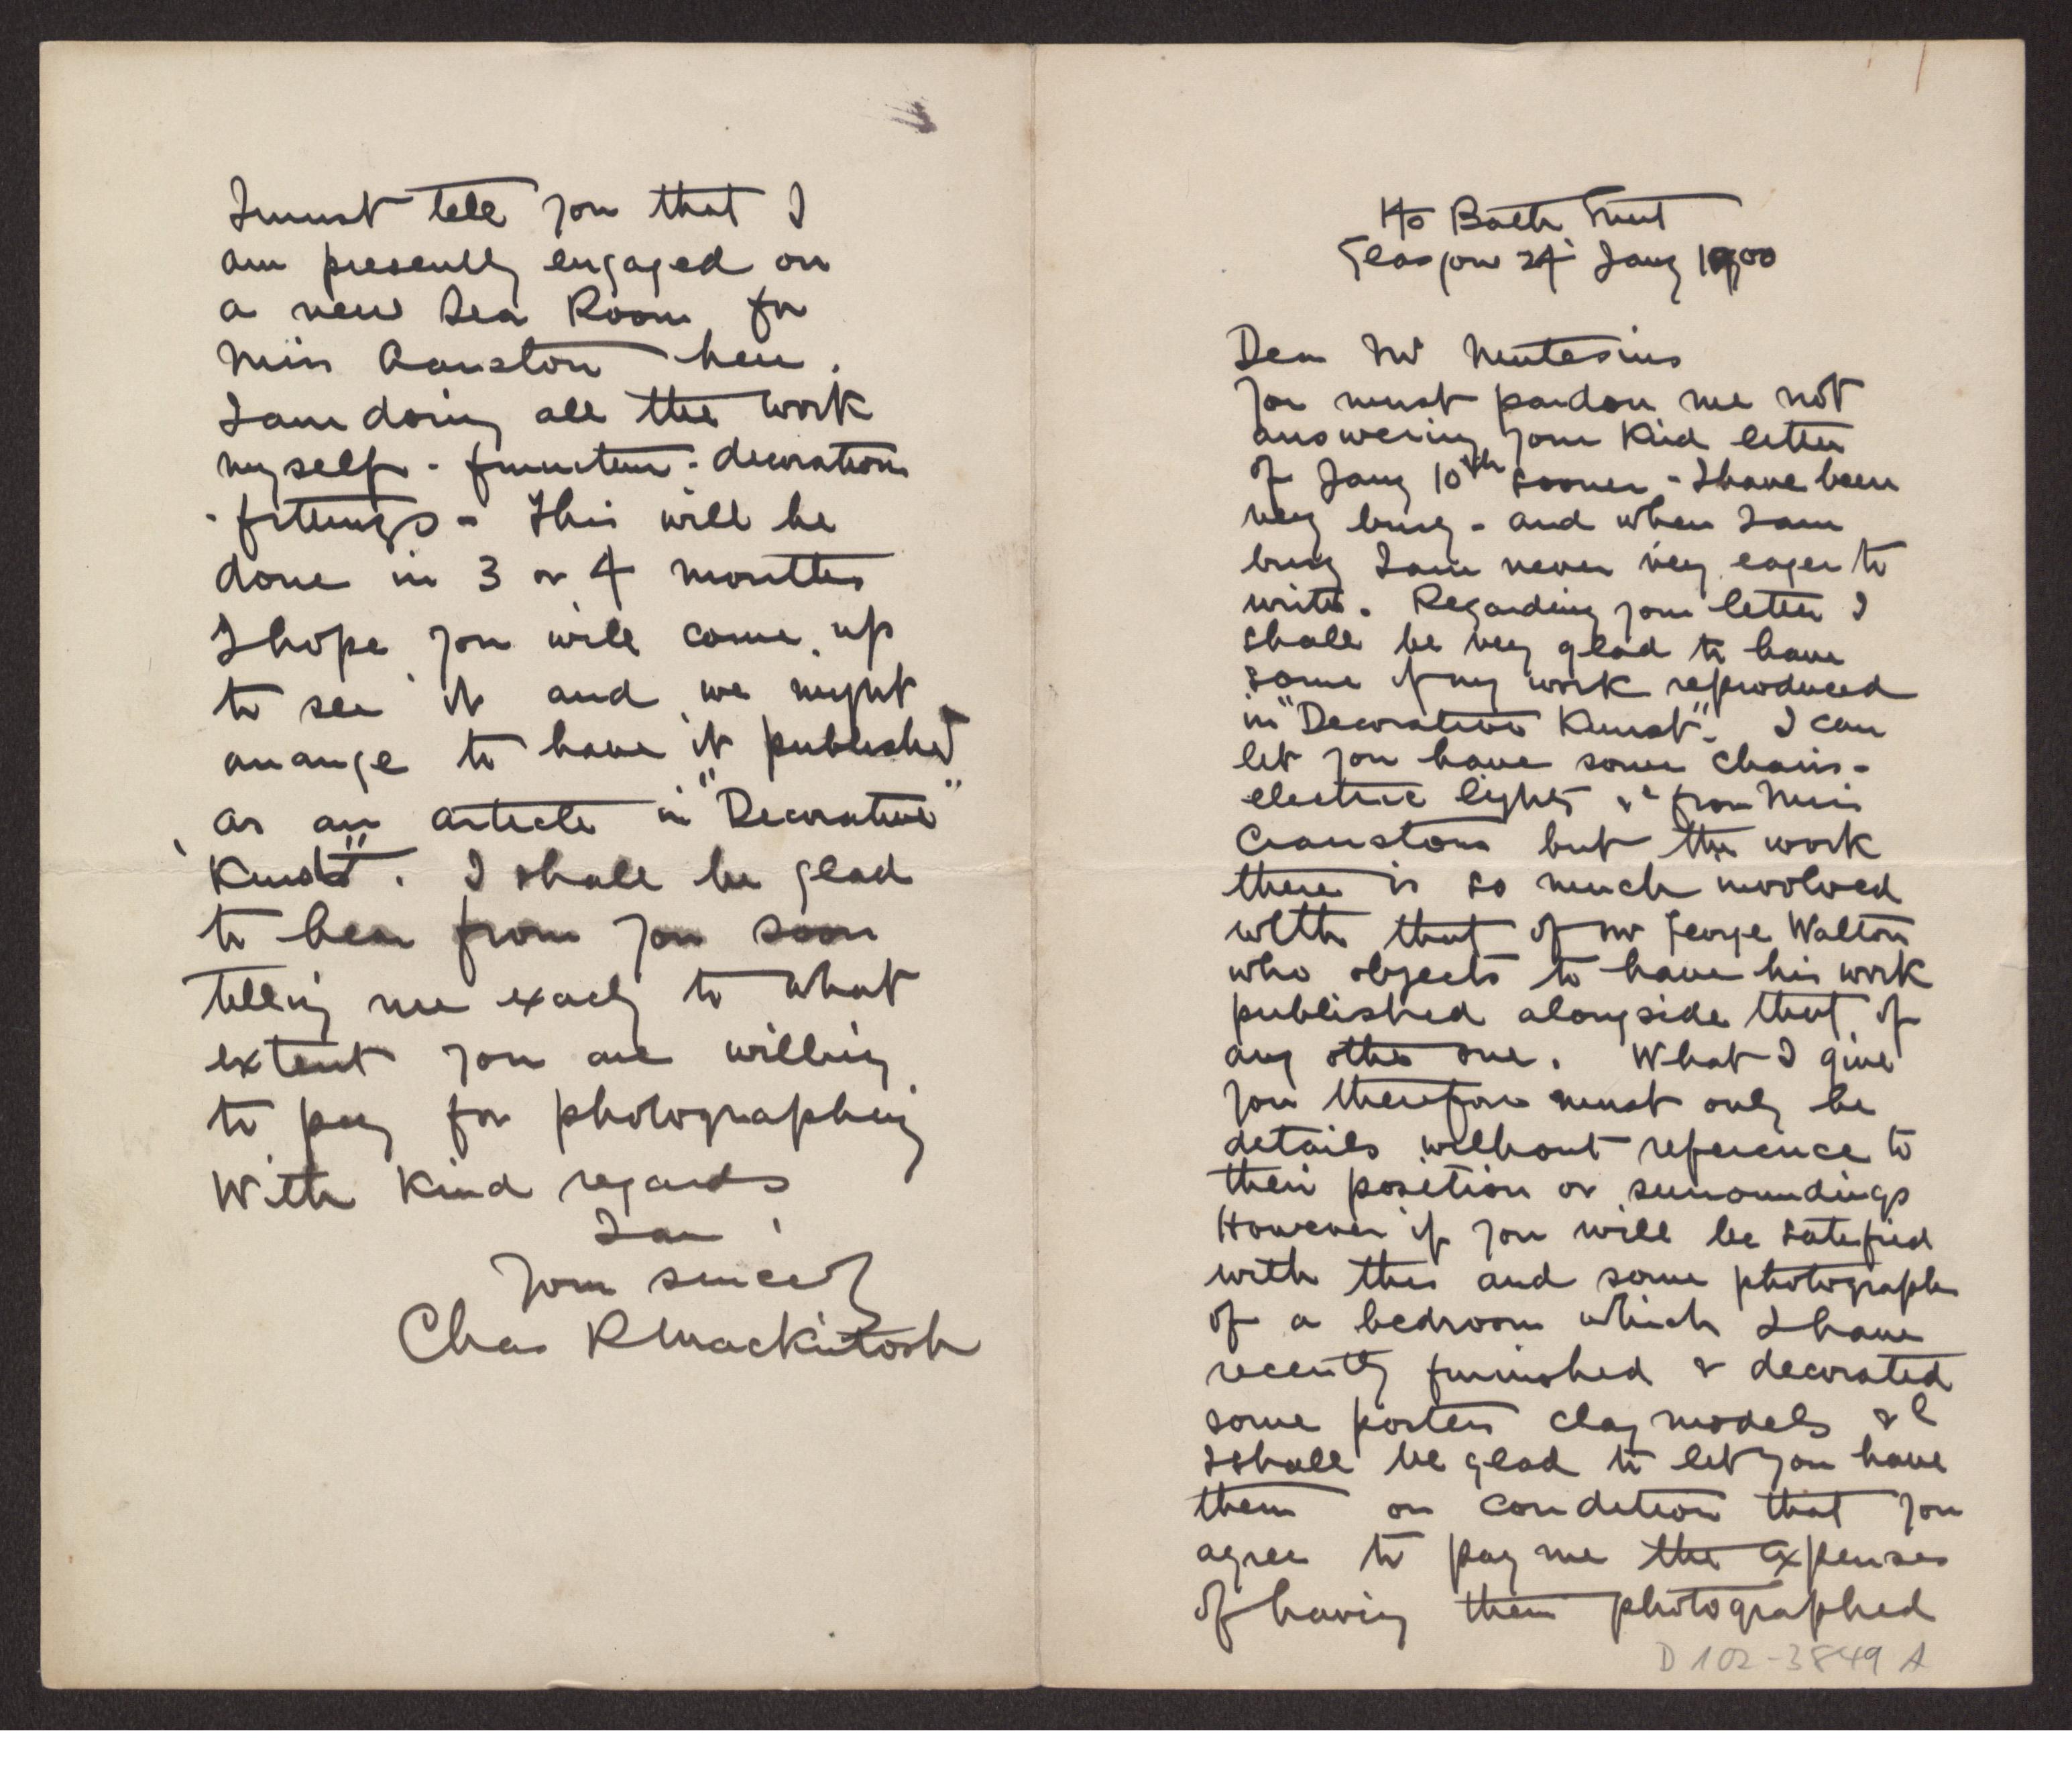 140 Bath Street
Glasgow 24 Jany 1900
Dear Mr Mutesius
You must pardon me not
answering your kind letter
of Jany 10th sooner - I have been
very busy - and when I am
busy I am never very eager to
write. Regarding your letter I
shall be very glad to have
some of my work reproduced
in "Decorative Kunst". I can
let you have some chairs -
electric lights &c from Miss
Cranstons but the work
there is so much involved
with that of Mr George Walton
who objects to have his work
published alongside that of
any other one. What I give
you therefore must only be
details without reference to
their position or surroundings
However if you will be satisfied
with this and some photographs
of a bedroom which I have
recently furnished & decorated
some posters clay models &c
I shall be glad to let you have
them on condition that you
agree to pay me the expenses
of having them photographed
D 102-3849 A
I must tell you that I
am presently engaged on
a new Tea Room for
Miss Cranston here.
I am doing all the work
myself - furniture - decorations
- fittings - This will be
done in 3 or 4 months
I hope you will come up
to see it and we might
arrange to have it published
as an article in "Decorative"
Kunst". I shall be glad
to hear from you soon
telling me exacly to what
extent you are willing
to pay for photographing
With kind regards
I am
Yours sincerely
Chas R Mackintosh